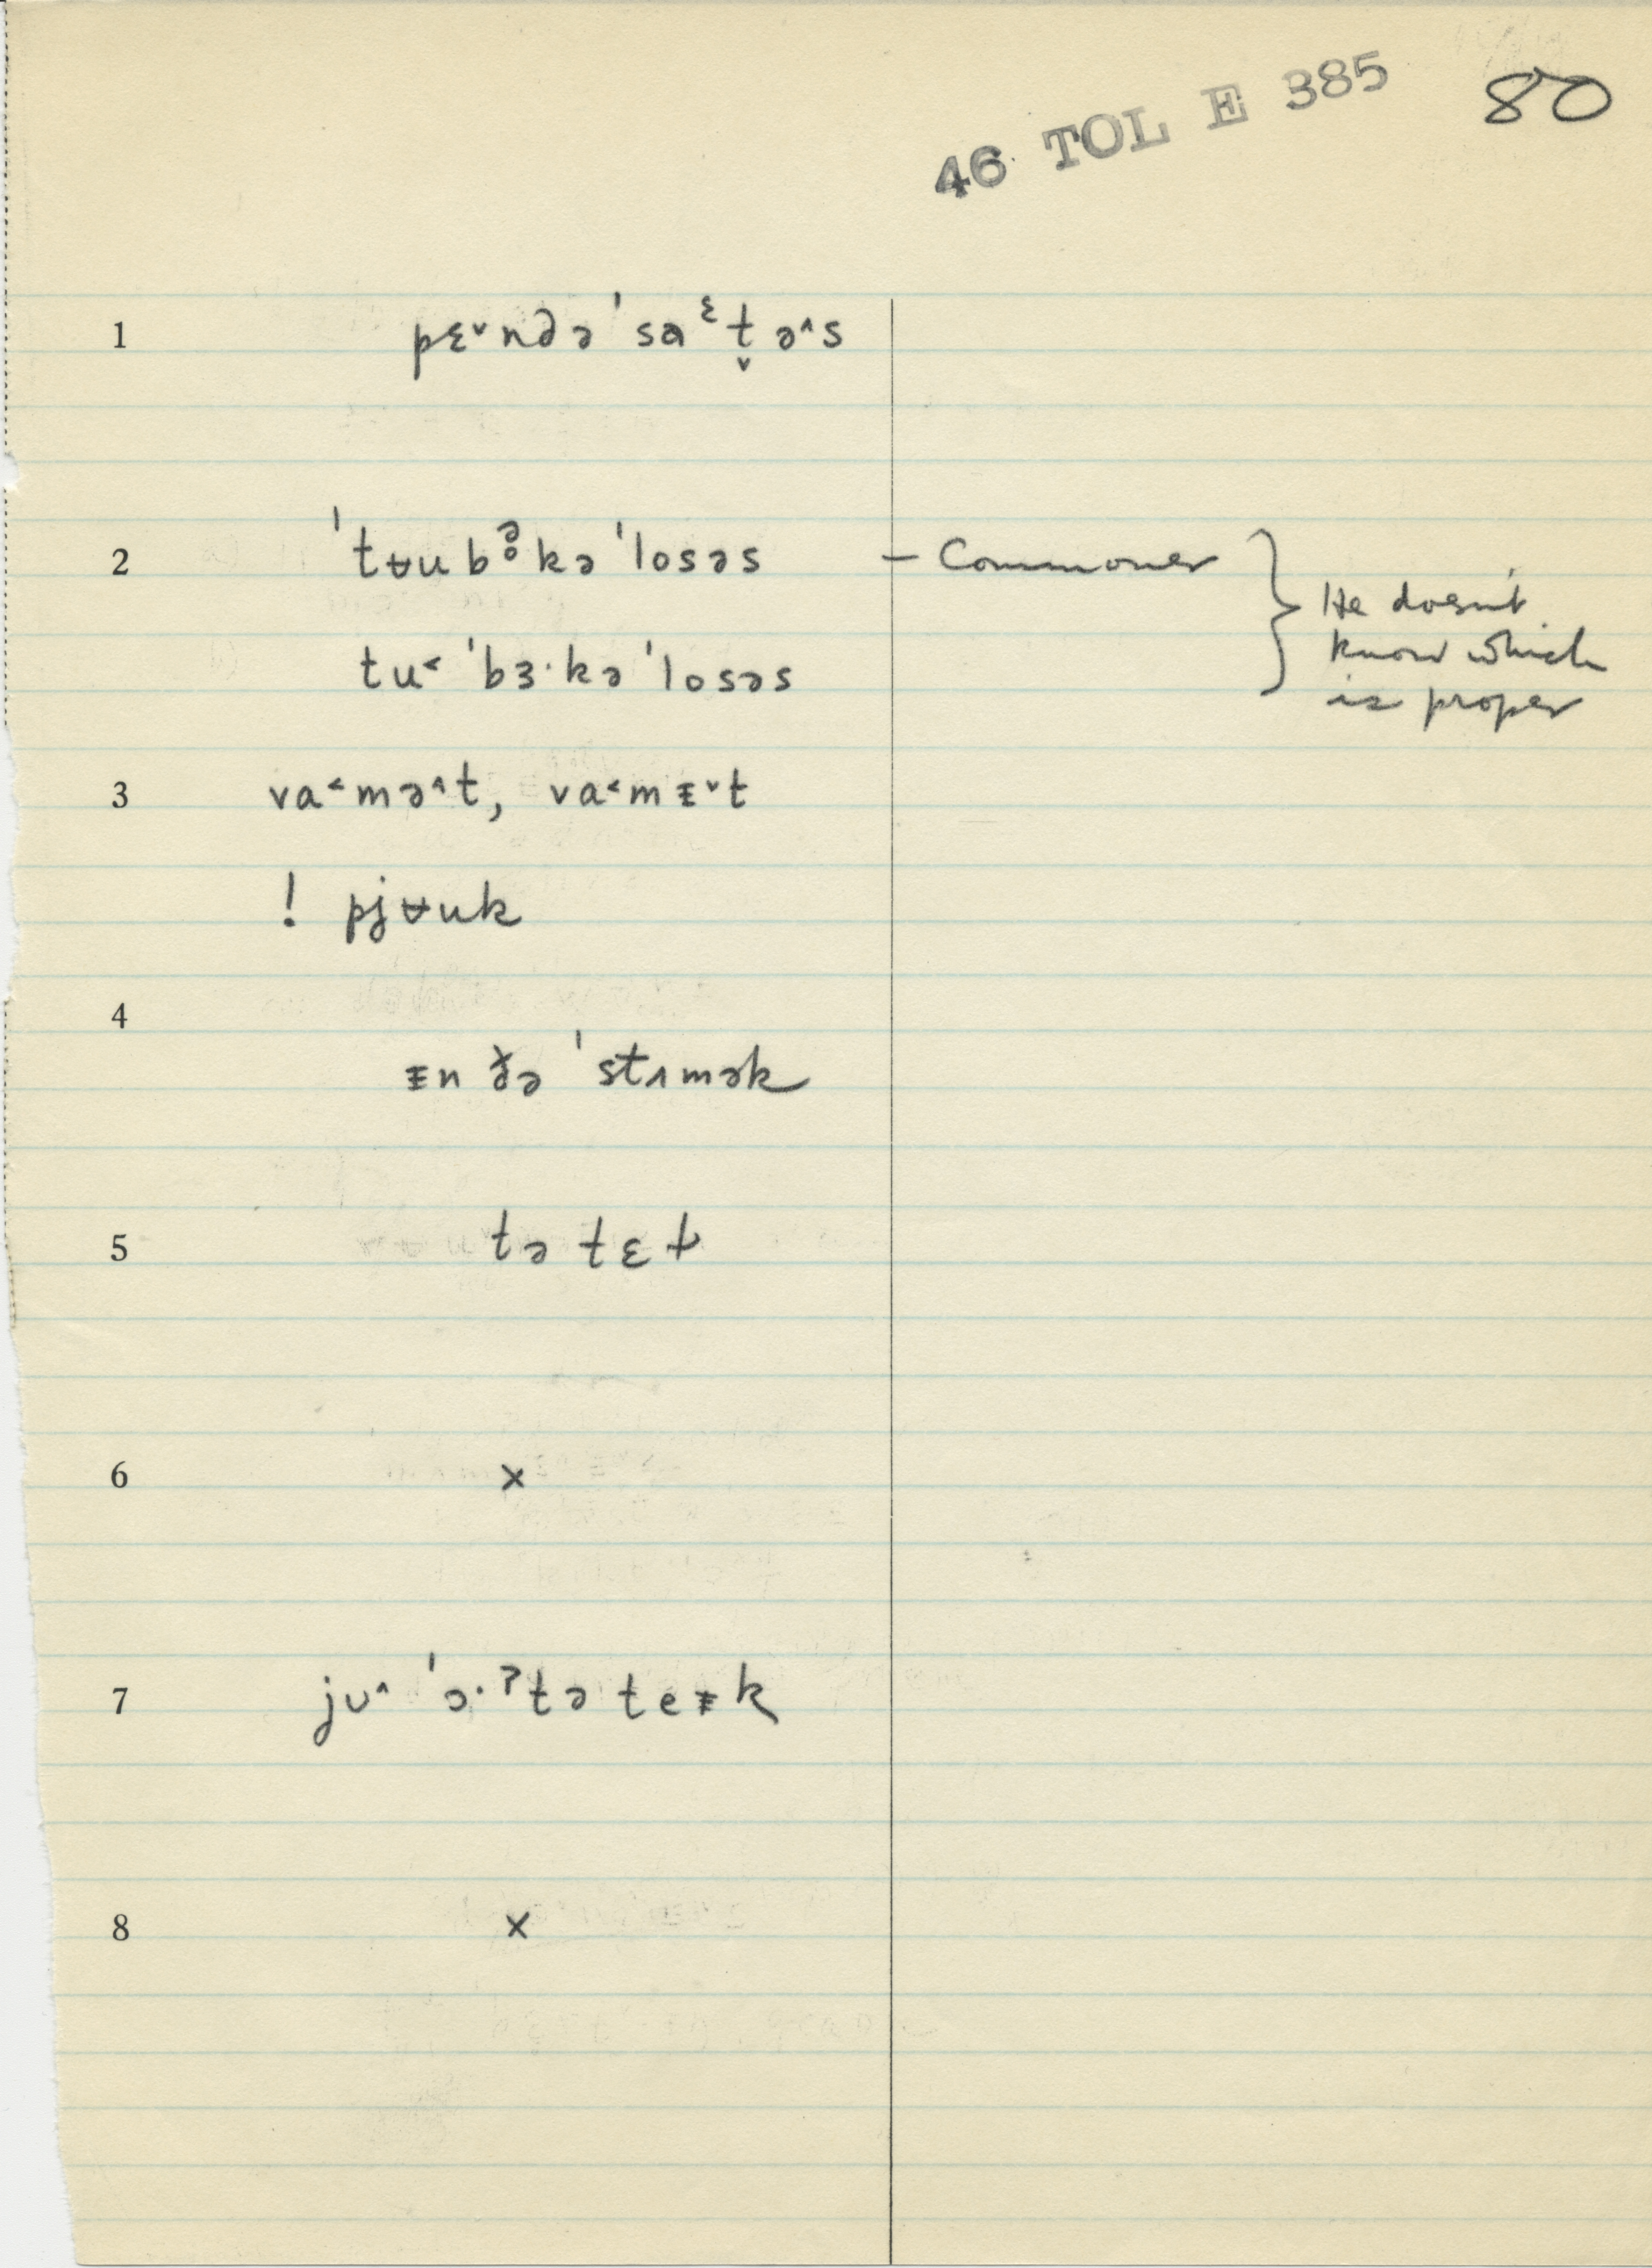 46 TOL E 385 80
1 pɛ˅ndə ˈsaᵋt̬ə˄s
2 ˈtʉub ə̥ kə ˈlosəs – Commoner
He doesn't
know which
tu˂ ˈbɜ·kə ˈlosəs
is proper
3 va˂mə˄t, va˂mᵻ˅t
! pjʉuk
4
ᵻn ðə ˈstʌmək
5 tə tɛt
6 x
7 jᴜ˄ ˈɔ·ˀtə teᵻk
8 x